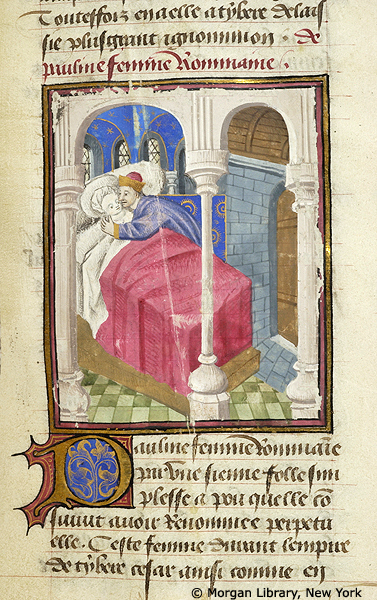 Touteffois en a elle a tybere de lais
sie plus grant ignominion . de
pauline femme Rommaine .
Pauline femme Rommaine
par vne sienne folle sim
plesse a pou quelle con
suiuit auoir Renommee perpetu
elle . Ceste femme durant lempire
de tybere cesar ainsi comme en
© Morgan Library, New York